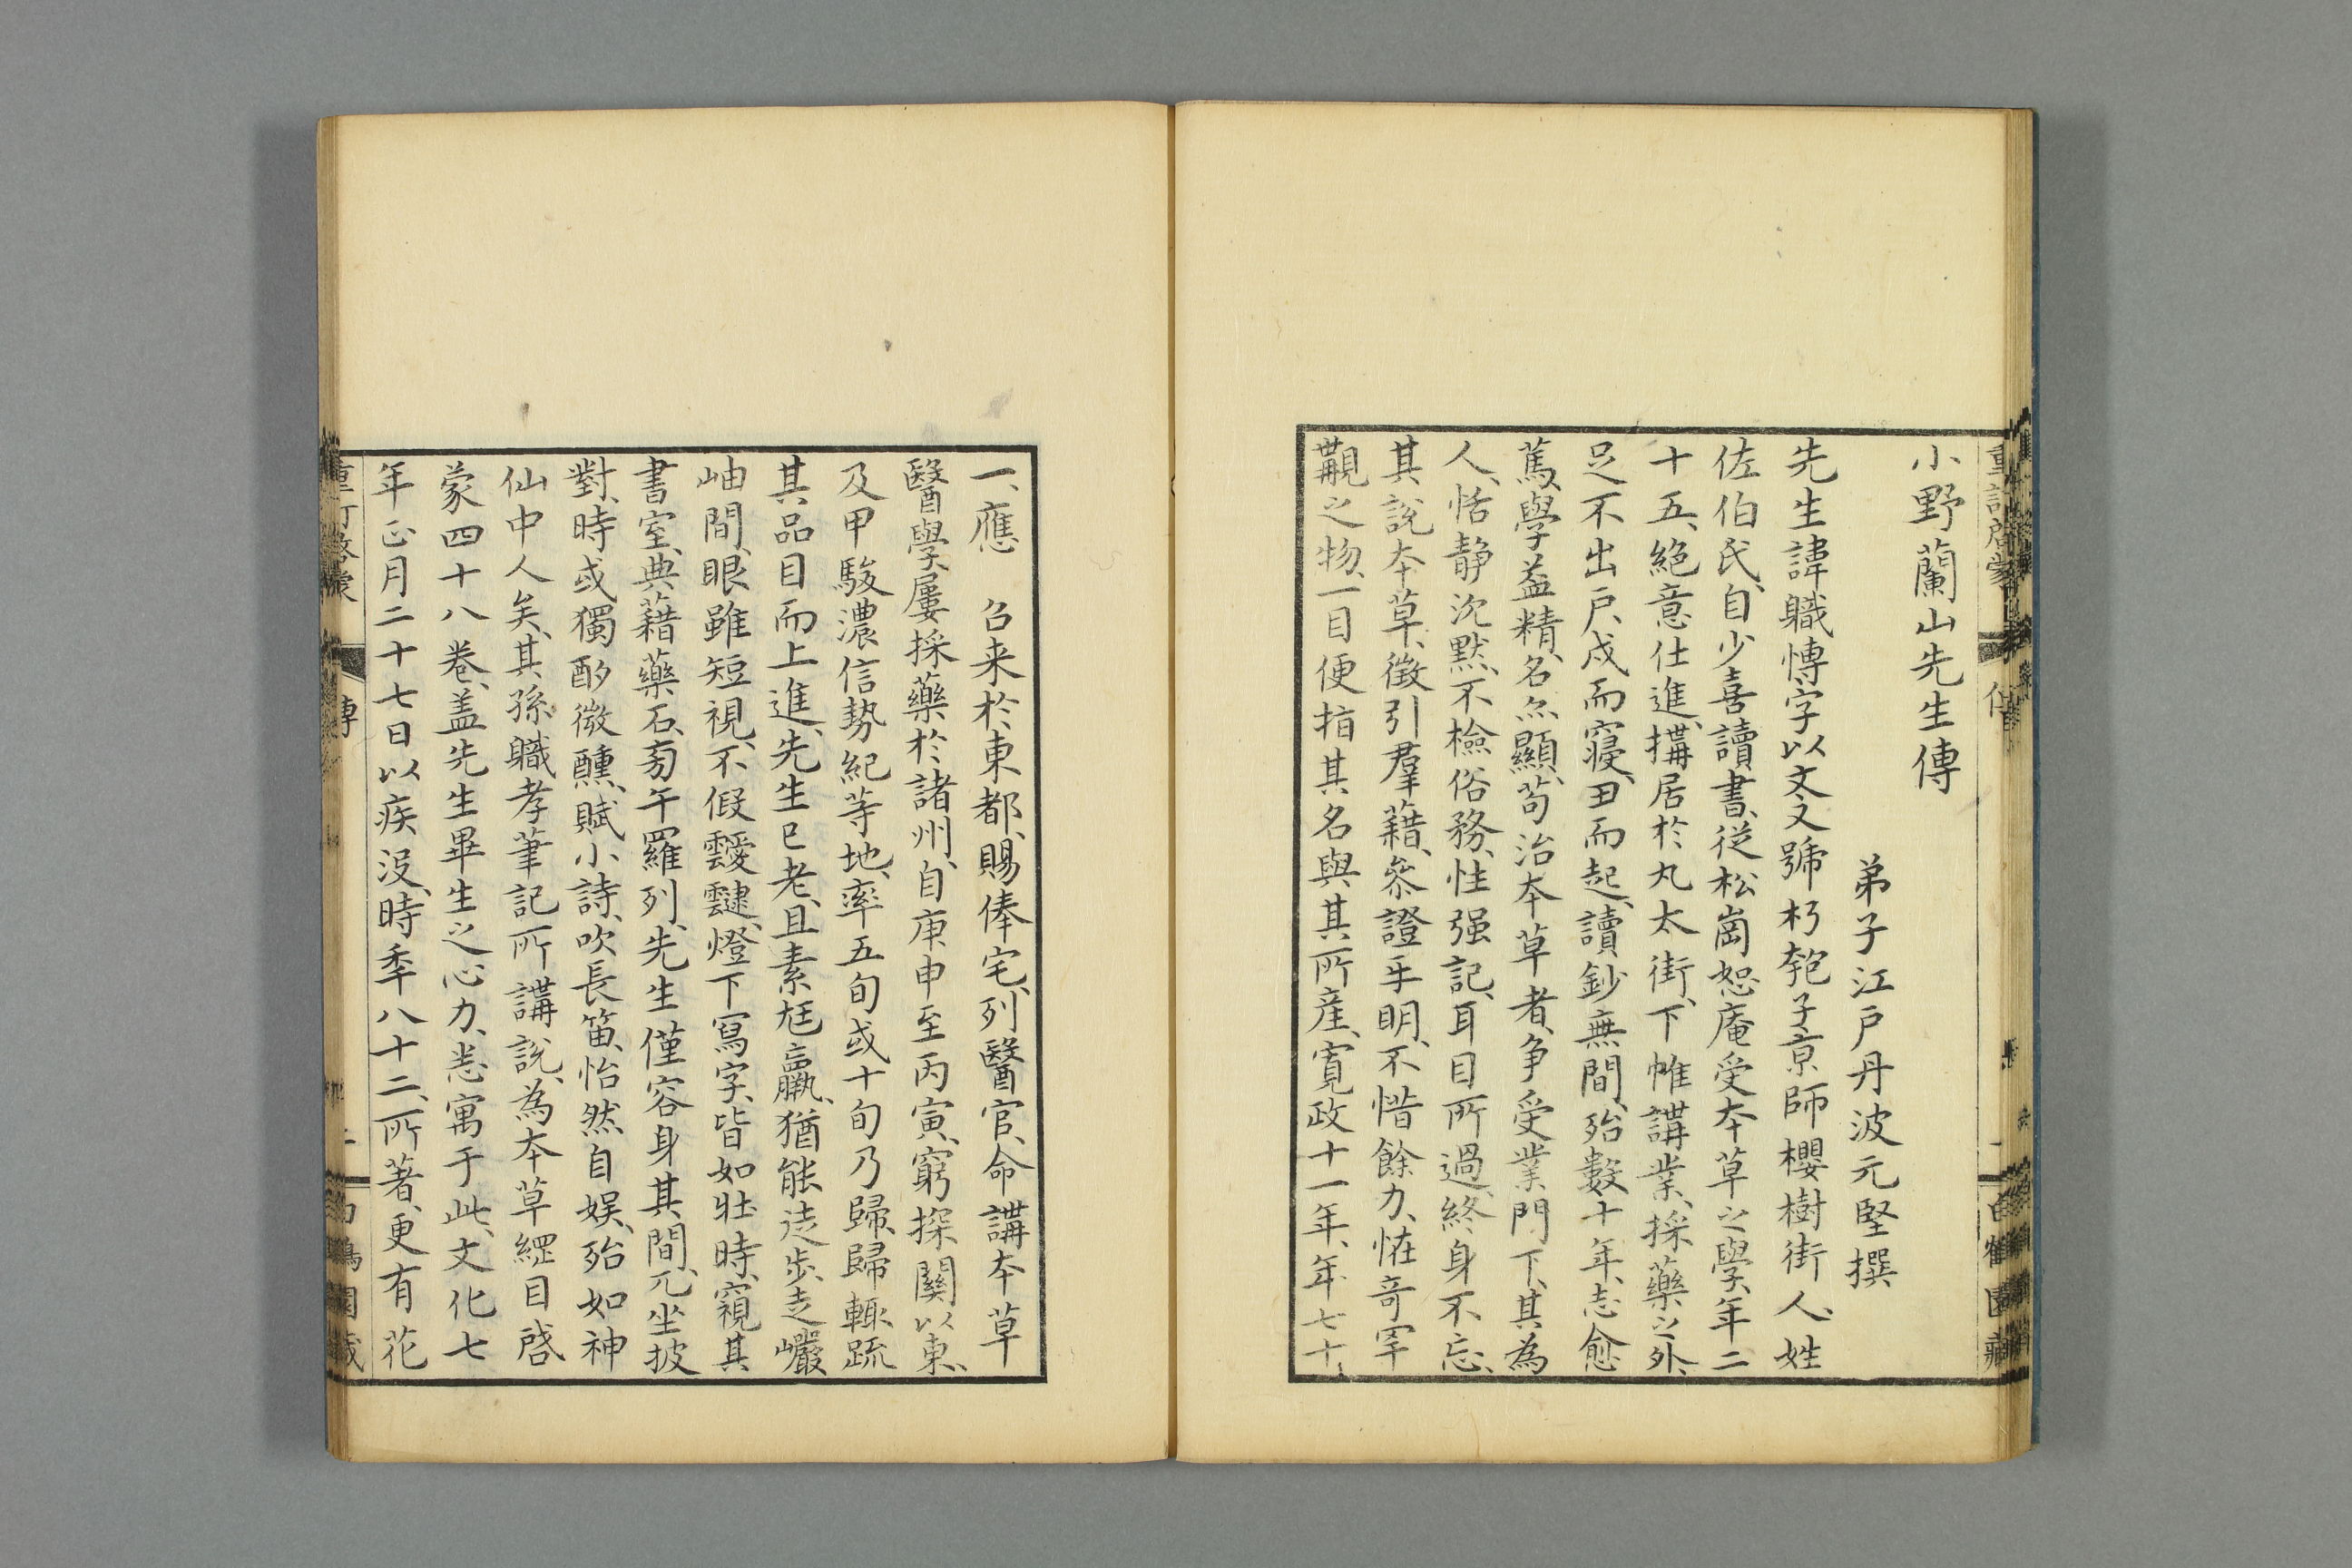 小野蘭山先生傳
弟子江戸丹波元堅撰
先生諱職博字以文又號朽匏子京師櫻樹街人、姓
佐伯氏、自少喜讀書、従松崗恕庵受本草之學、年二
十五、絶意仕進、搆居於丸太街、下帷講業、採藥之外、
足不出戸、戍而寝、丑而起、讀鈔無間、殆數十年、志愈
篤、學益精、名亦顯、苟治本草者、争受業門下、其為
人、恬静沈黙、不檢俗務、性强記、耳目所過、終身不忘、
其説本草、徴引羣藉、叅證乎明、不惜餘力、恠奇罕
覯之物、一目便指其名與其所産、寛政十一年、年七十、
一、應　召来於東都、賜俸宅、列醫官、命講本草
醫學、屢採藥於諸州、自庚申至丙寅、窮探關以東、
及甲駿濃信勢紀等地、率五旬或十旬乃歸、歸輙疏
其品目而上進、先生已老、且素尫羸、猶能徒歩、走巉巖
岫間、眼雖短視、不假靉靆、燈下寫字、皆如壮時、窺其
書室、典藉藥石、旁午羅列、先生僅容身其間、兀坐披
對、時或獨酌微醺、賦小詩、吹長笛、怡然自娯、殆如神
仙中人矣、其孫職孝筆記所講説、為本草綱目啓
蒙四十八卷、盖先生畢生之心力、悉寓于此、文化七
年正月二十七日以疾没、時季八十二、所著、更有花